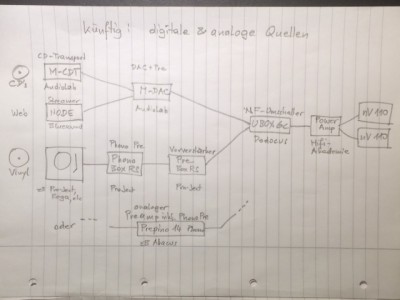 künftig: digitale & analoge Quellen
CD-Transport
M-CDT
CDs
Audiolab
DAC + Pre
M-DAC
Audiolab
Streamer
Web
NODE
Bluesound
NF-Umschalter
UBOX
Dodocus
Power
Amp
Hifi-
Akademie
nV 110
nV 110
Vinyl
Pro-Ject,
Rega, etc
Phono Pre
Phono
Box RS
Pro-Ject
Vorverstärker
Pre-
Box RS
Pro-Ject
oder
analoger
Preamp inkl. Phono Pre
Prepino 14 Phono
Abacus